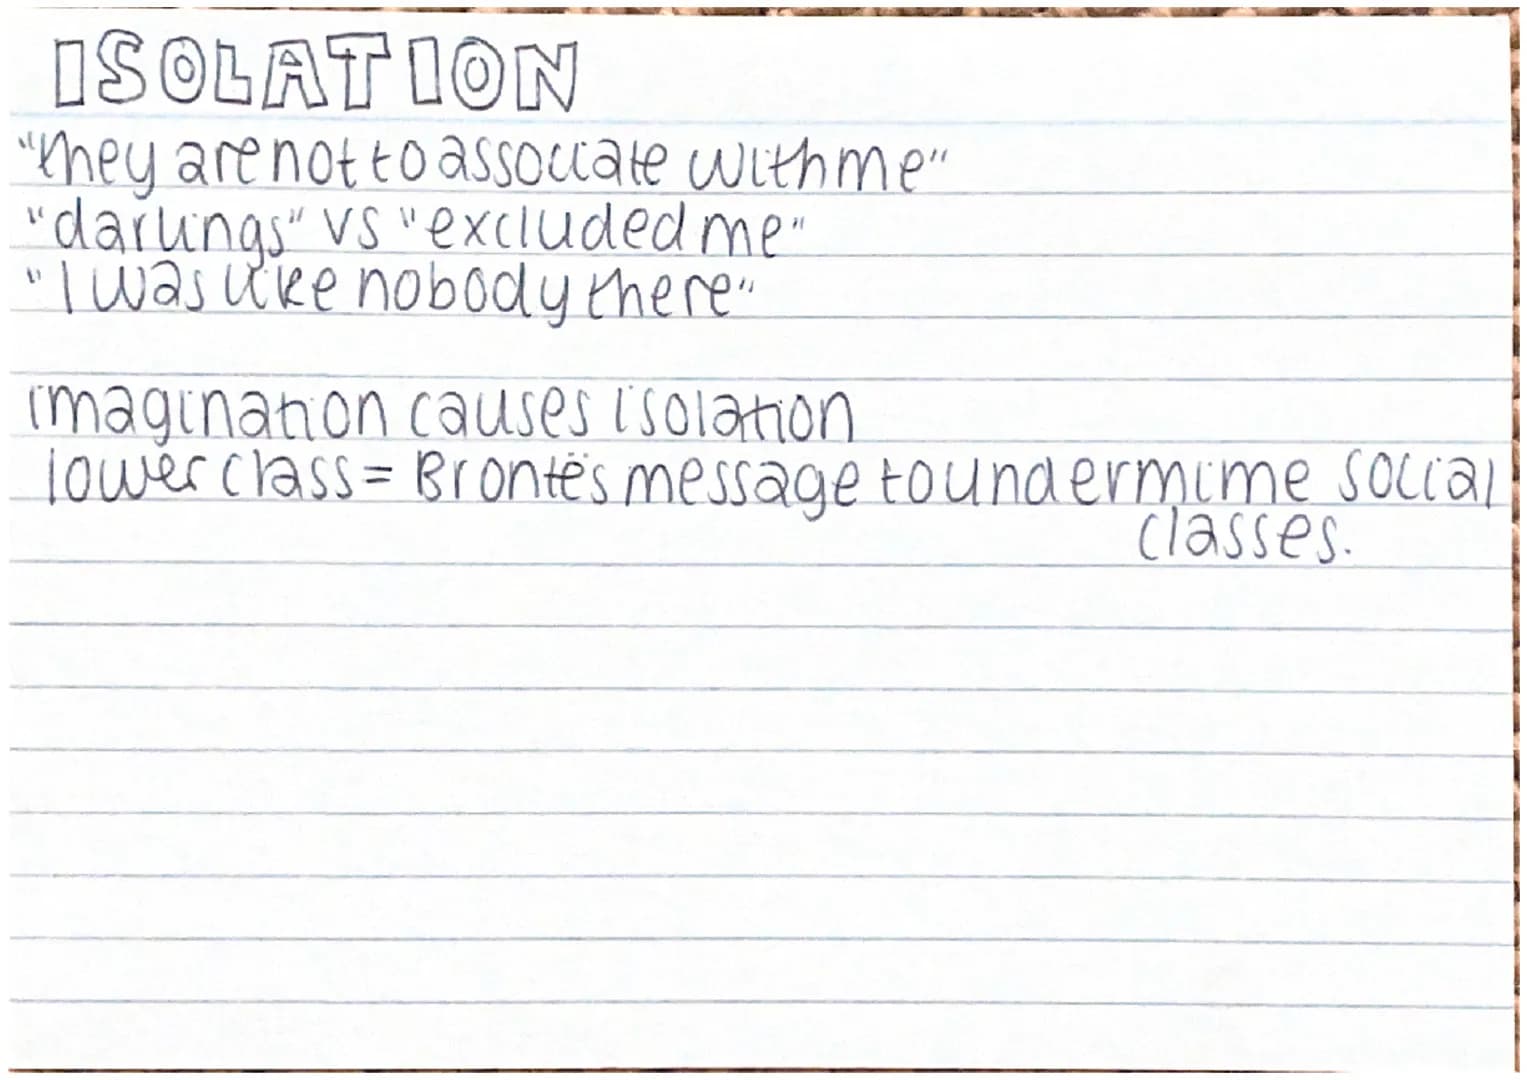 ISOLATION
"they are not to associate with me"
"darlings" vs "excluded me"
"I was like nobody there"
imagination causes isolation
lower class = Brontë's message to undermime social
classes.